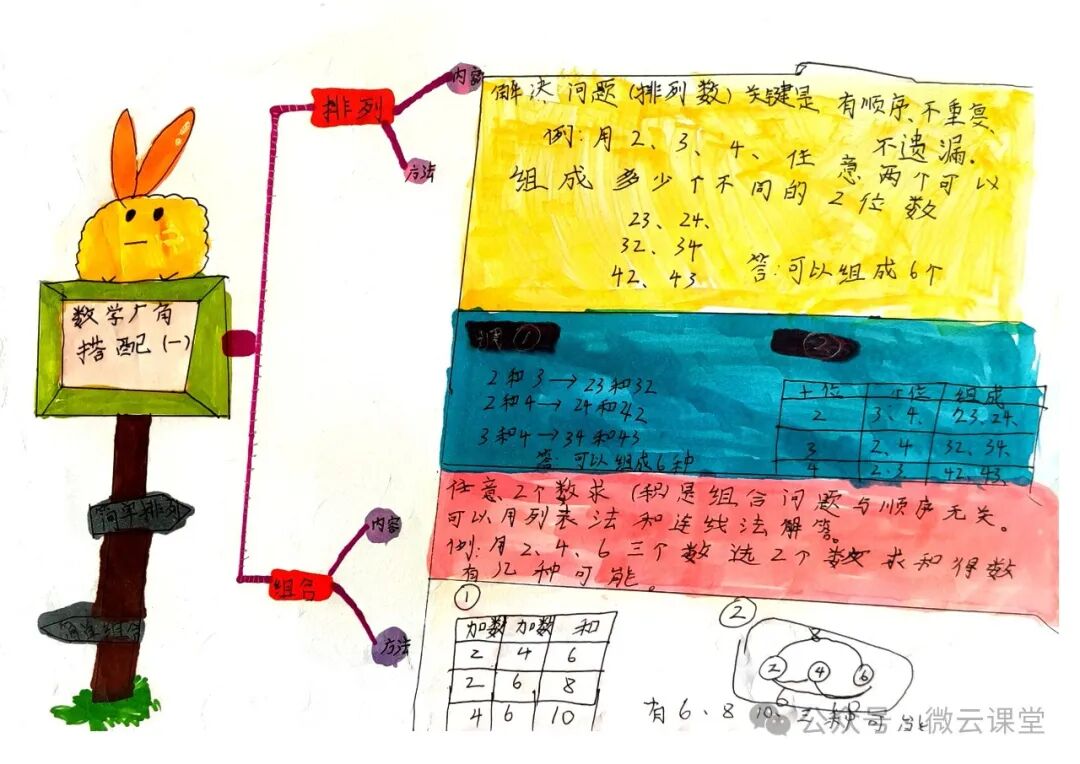 数学广角
搭配(一)
简单排列
简单组合
排列
内容
方法
组合
内容
方法
解决问题(排列数)关键是 有顺序、不重复、
不遗漏.
例:用2、3、4、任意两个可以
组成多少个不同的2位数
23、24、
32、34
42、43.
答:可以组成6个
①
2和3→23和32
2和4→24和42
3和4→34和43
答:可以组成6种
②
十位 个位 组成
2 3、4、 23、24、
3 2、4 32、34、
4 2、3 42、43、
任意2个数求(积)是组合问题与顺序无关。
可以用列表法和连线法解答。
例:用2、4、6三个数选2个数求和得数
有几种可能。
①
加数 加数 和
2 4 6
2 6 8
4 6 10
②
8
2 4 6
6 10
有6、8、10、三种可能
公众号·微云课堂